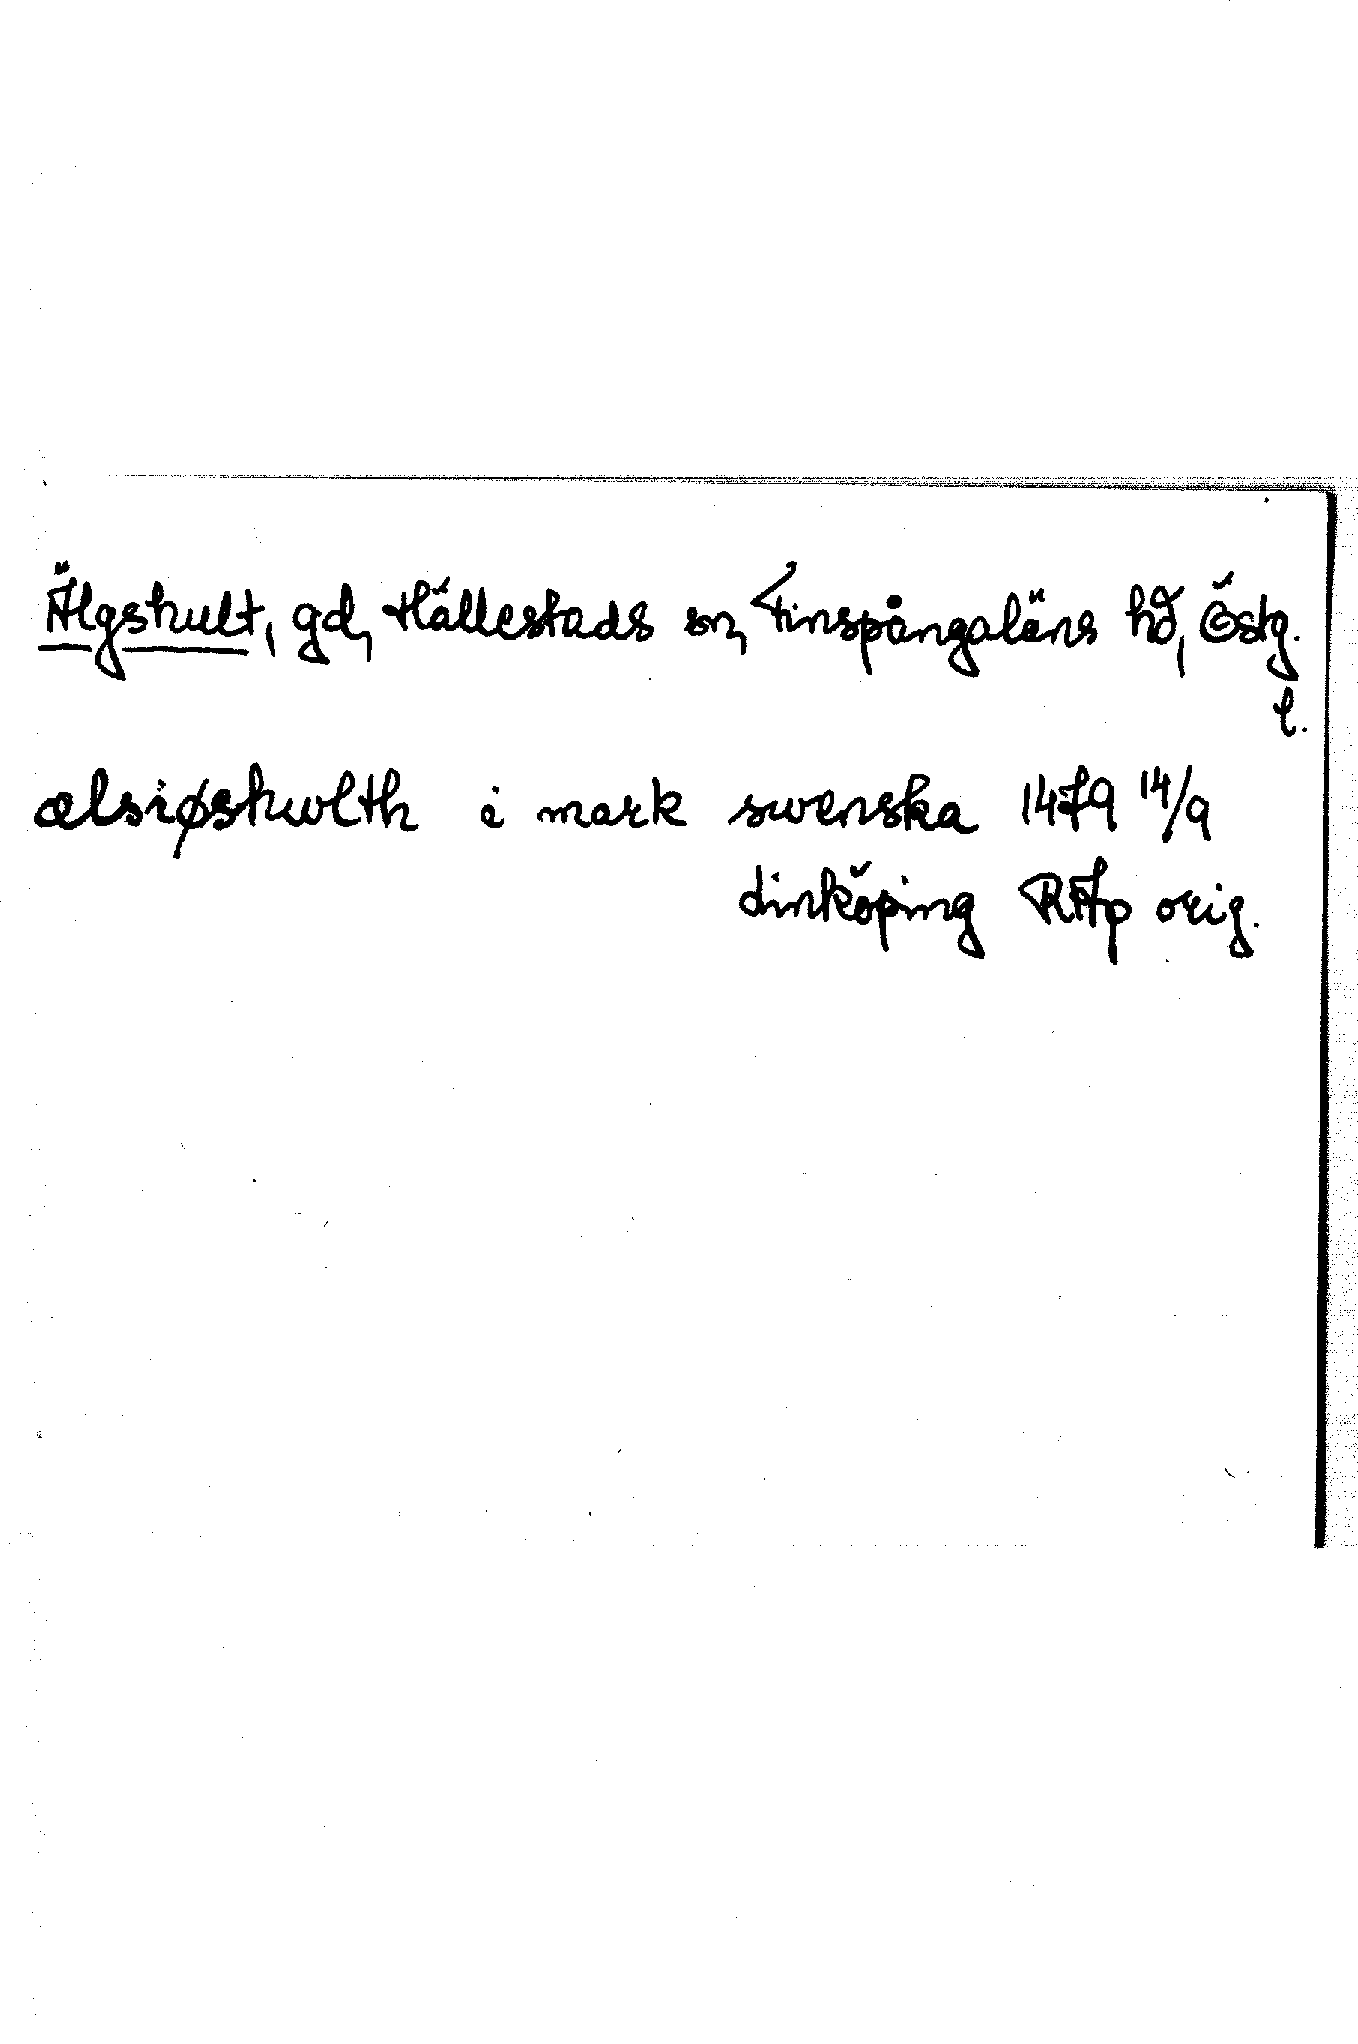 Älgshult, gd, Hällestads sn, Finspångaläns hd, Östg.
l.
ælsiøshwlth i mark swenska 1479 14/9
Linköping RAp orig.